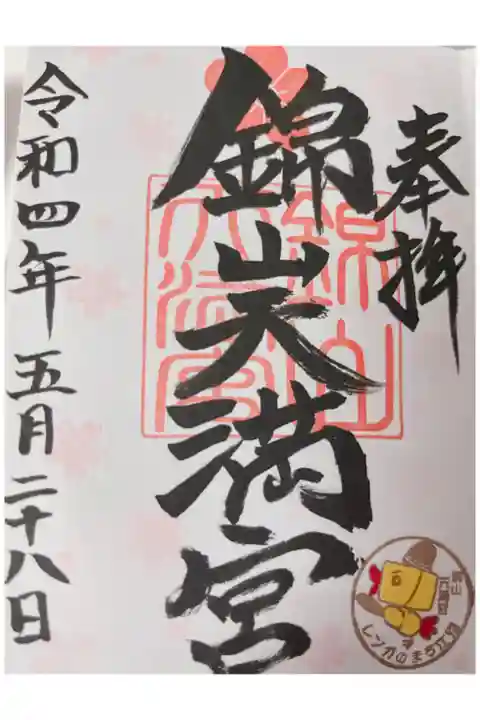 奉拝
錦山天満宮
錦山
天満宮
令和四年五月二十八日
レンガのまち江別